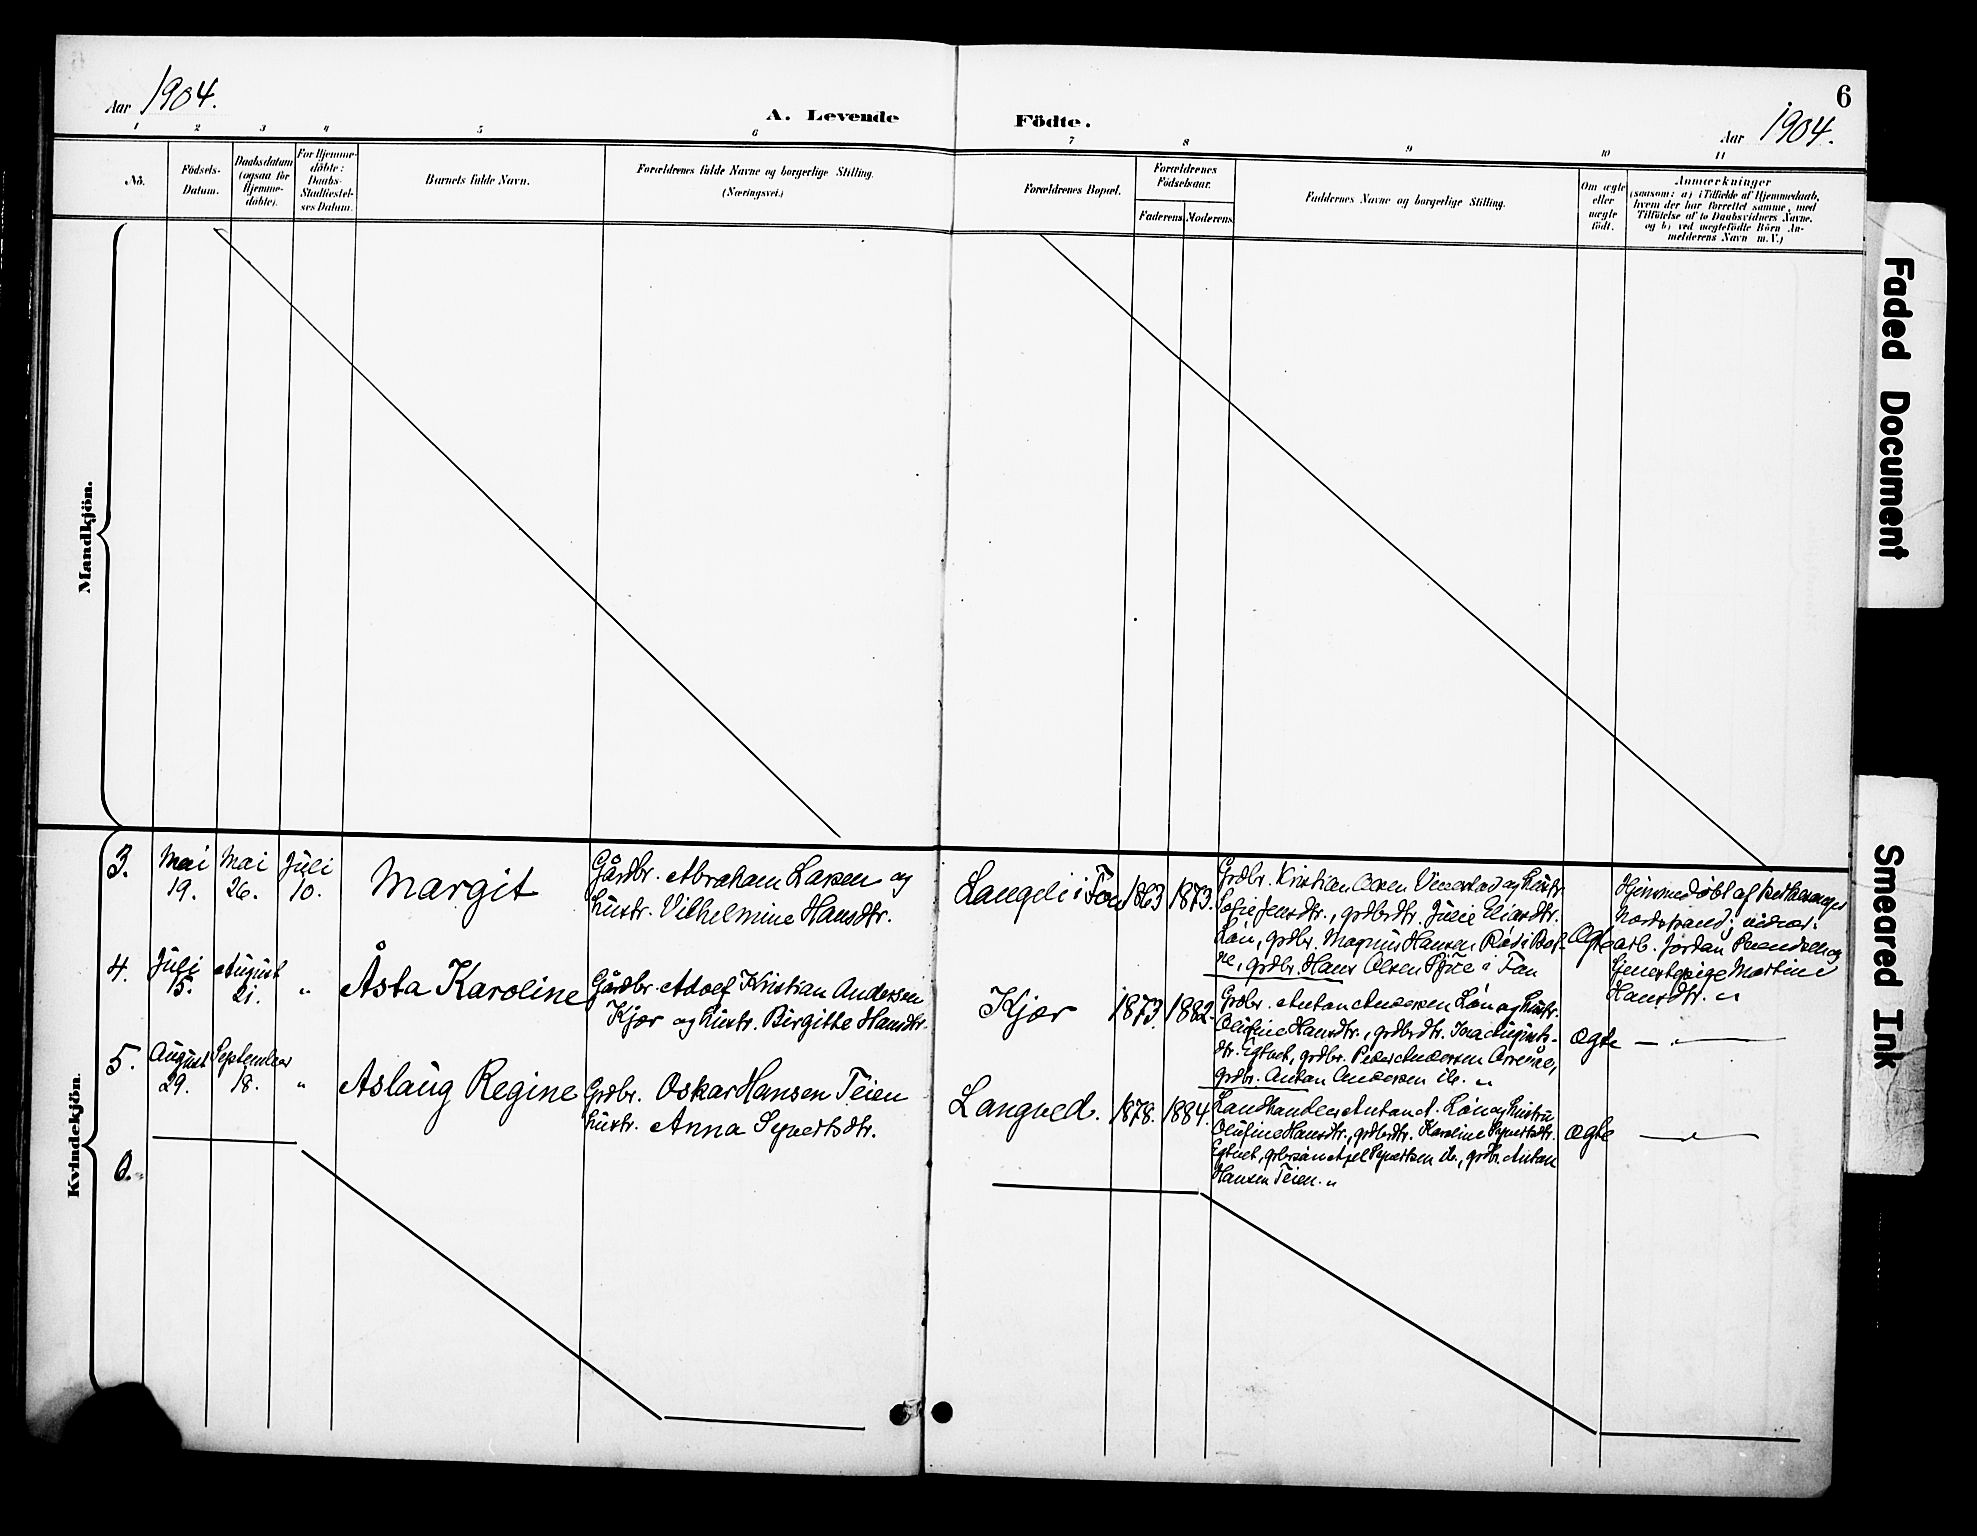 Aar 1904.
A. Levende Födte.
6
Aar 1904.
1 2 3 4 5 6 7 8 9 10 11
No.
Födsels-
Datum.
Daabsdatum
(ogsaa for
Hjemme-
döbte).
For Hjemme-
döbte:
Daabs-
Stadfæstel-
ses Datum.
Barnets fulde Navn.
Forældrenes fulde Navne og borgerlige Stilling.
(Næringsvei.)
Forældrenes Bopæl.
Forældrenes
Födselsaar.
Faderens
Moderens
Faddernes Navne og borgerlige Stilling.
Om ægte
eller
uægte
födt.
Anmærkninger
(saasom: a) i Tilfælde af Hjemmedaab,
hvem der har forrettet samme, med
Tilföielse af to Daabsvidners Navne.
og b) ved uægtefödte Börn An-
melderens Navn m. V.)
Mandkjön.
Kvindekjön.
3.
Mai
19.
Mai
26.
Juli
10.
Margit
Gårdbr. Abraham Larsen og
hustr. Vilhelmine Hansdtr.
Langeli i Fon
1863
1873.
Grdbr. Kristian Olsen og hustr.
Sofie Jensdtr., grdbrdtr. Julie Eliasdtr.
Løn, grdbr. Magnus Hansen Rød i Bot-
ne, grdbr. Hans Olsen i Fon
Ægte
Hjemmedøbt af
Nordstrand; vidner:
arb. Jordan og
tjenestepige Martine
Hansdtr. „
4.
Juli
15.
August
21.
„
Åsta Karoline
Gårdbr. Adolf Kristian Andersen
Kjær og hustr. Birgitte Hansdtr.
Kjær
1873.
1882.
Grdbr. Anton Andersen Løn og hustr.
Olufine Hansdtr., grdbrdtr. Ina Augusts-
dtr. Egtvet, grdbr. Peder Andersen
grdbr. Anton Andersen ib. „
ægte
— „ —
5.
August
29.
September
18.
„
Aslaug Regine
Grdbr. Oskar Hansen Teien
hustr. Anna Syvertsdtr.
Langved.
1878.
1884.
Landhandler Anton A. Løn og hustru
Olufine Hansdtr., grdbrdtr. Karoline Syvertsdtr.
Egtvet, grdbrsøn Axel Syvertsen ib., grdbr. Anton
Hansen Teien. „
ægte
— „ —
0. „
Faded Document
Smeared Ink